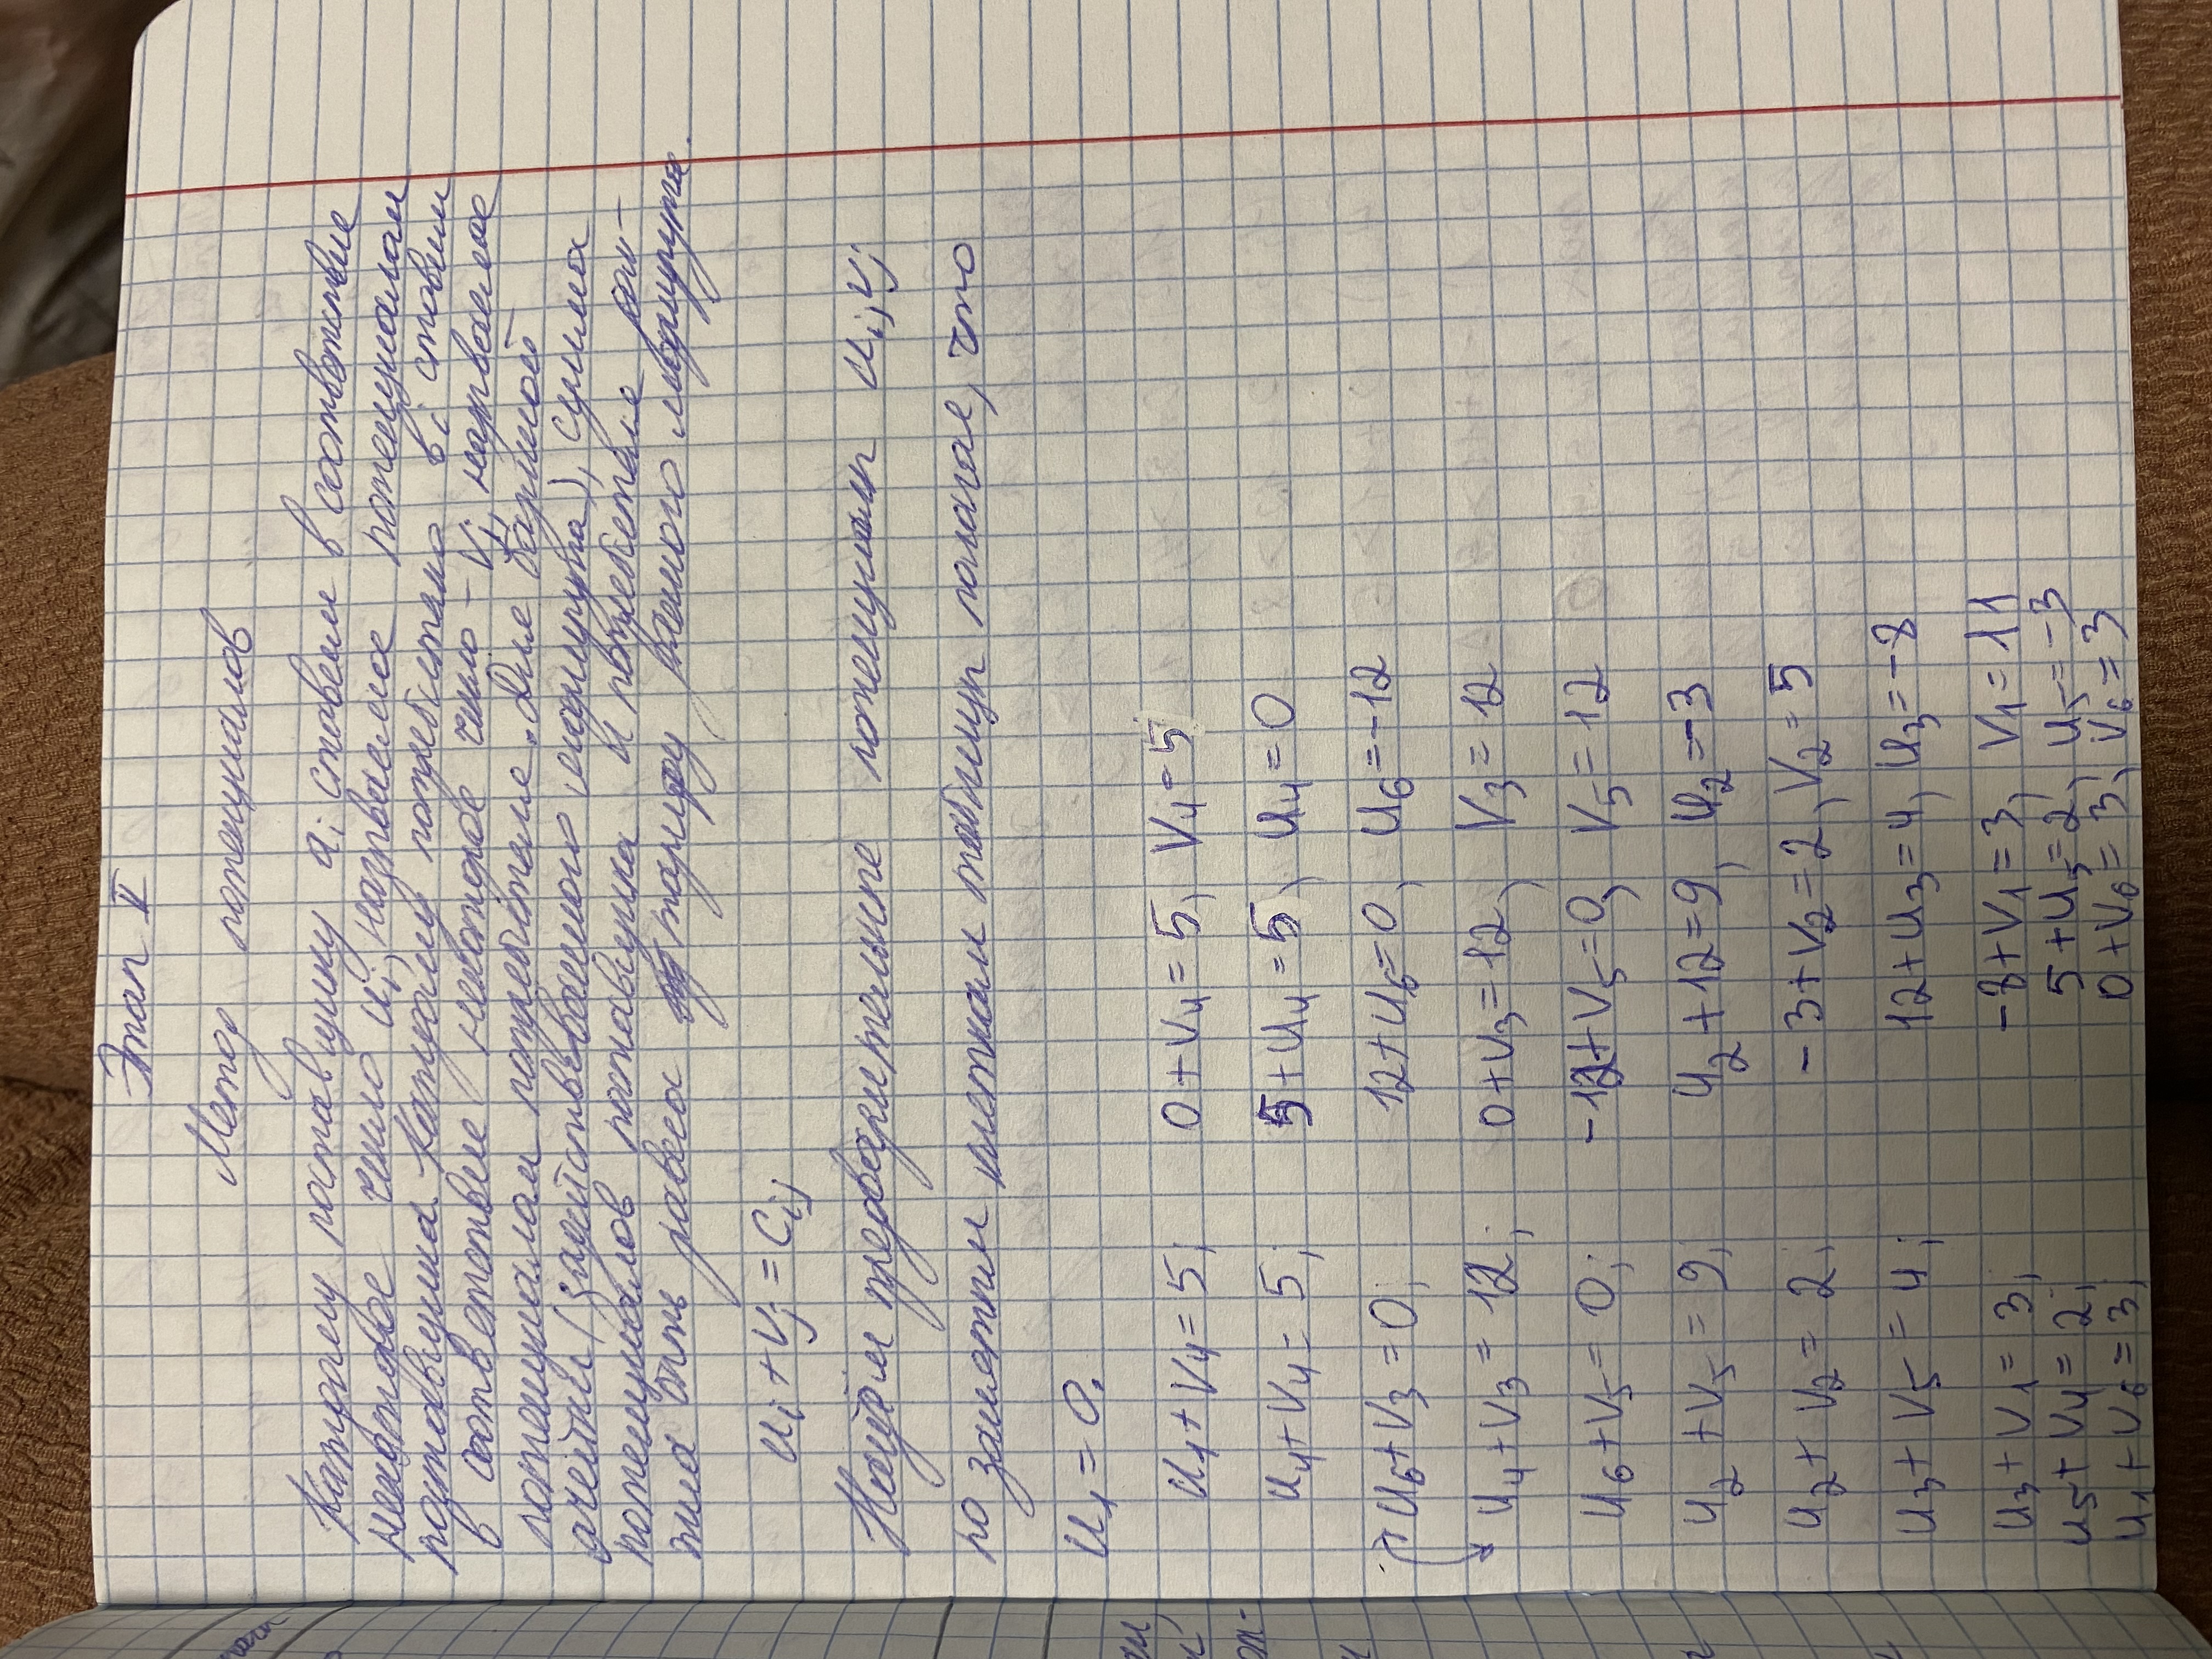 Этап II
Метод потенциалов
Каждому поставщику aᵢ ставим в соответствие
некоторое число uᵢ, называемое потенциалом
поставщика. Каждому потребителю вᵢ ставим
в соответствие некоторое число – Vⱼ, называемое
потенциалом потребителя. Для базисной
ячейки (задействованного маршрута), сумма
потенциалов поставщика и потребителя дол-
жна быть равна тарифу данного маршрута.
uᵢ + vⱼ = Cᵢⱼ
Найдём предварительные потенциалы uᵢ, vⱼ
по занятым клеткам таблицы полагая, что
u₁ = 0.
u₁ + v₄ = 5; 0 + v₄ = 5, v₄ = 5
u₄ + v₄ = 5; 5 + u₄ = 5, u₄ = 0
u₆ + v₃ = 0; 12 + u₆ = 0, u₆ = -12
u₄ + v₃ = 12; 0 + v₃ = 12, v₃ = 12
u₆ + v₅ = 0; -12 + v₅ = 0, v₅ = 12
u₂ + v₅ = 9; u₂ + 12 = 9, u₂ = -3
u₂ + v₂ = 2; -3 + v₂ = 2, v₂ = 5
u₃ + v₅ = 4; 12 + u₃ = 4, u₃ = -8
u₃ + v₁ = 3; -8 + v₁ = 3, v₁ = 11
u₅ + v₄ = 2; 5 + u₅ = 2, u₅ = -3
u₁ + v₆ = 3; 0 + v₆ = 3, v₆ = 3